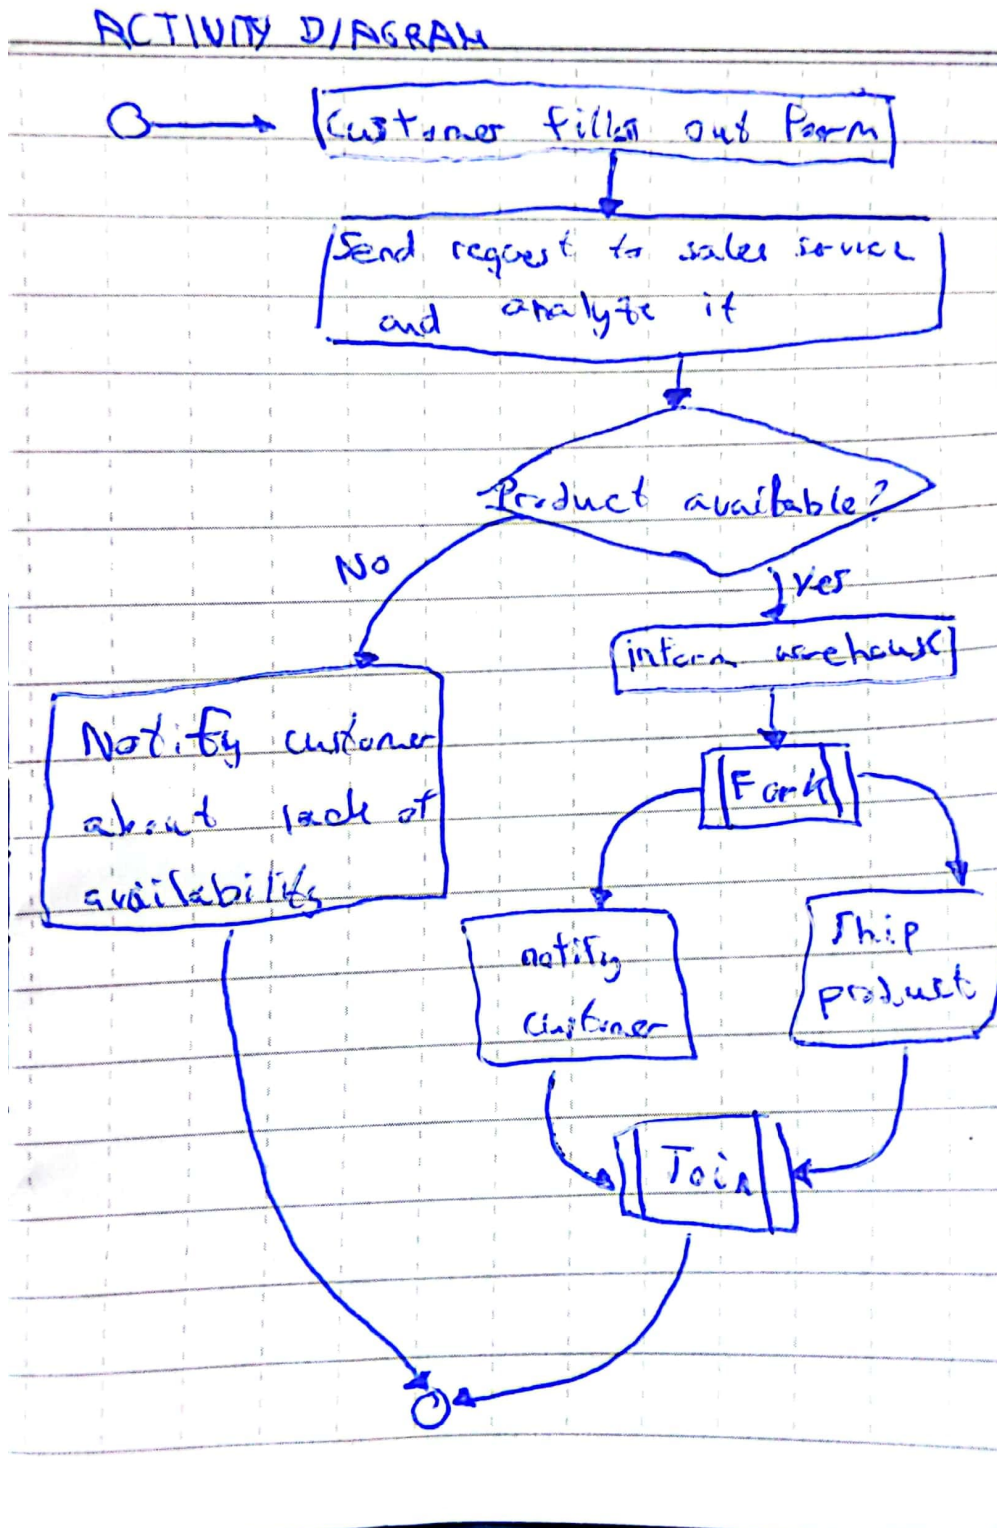 ACTIVITY DIAGRAM
Customer fills out Form
Send request to sales service
and analyze it
Product available?
No
Yes
inform warehouse
Notify customer
about lack of
availability
Fork
notify
customer
Ship
product
Join